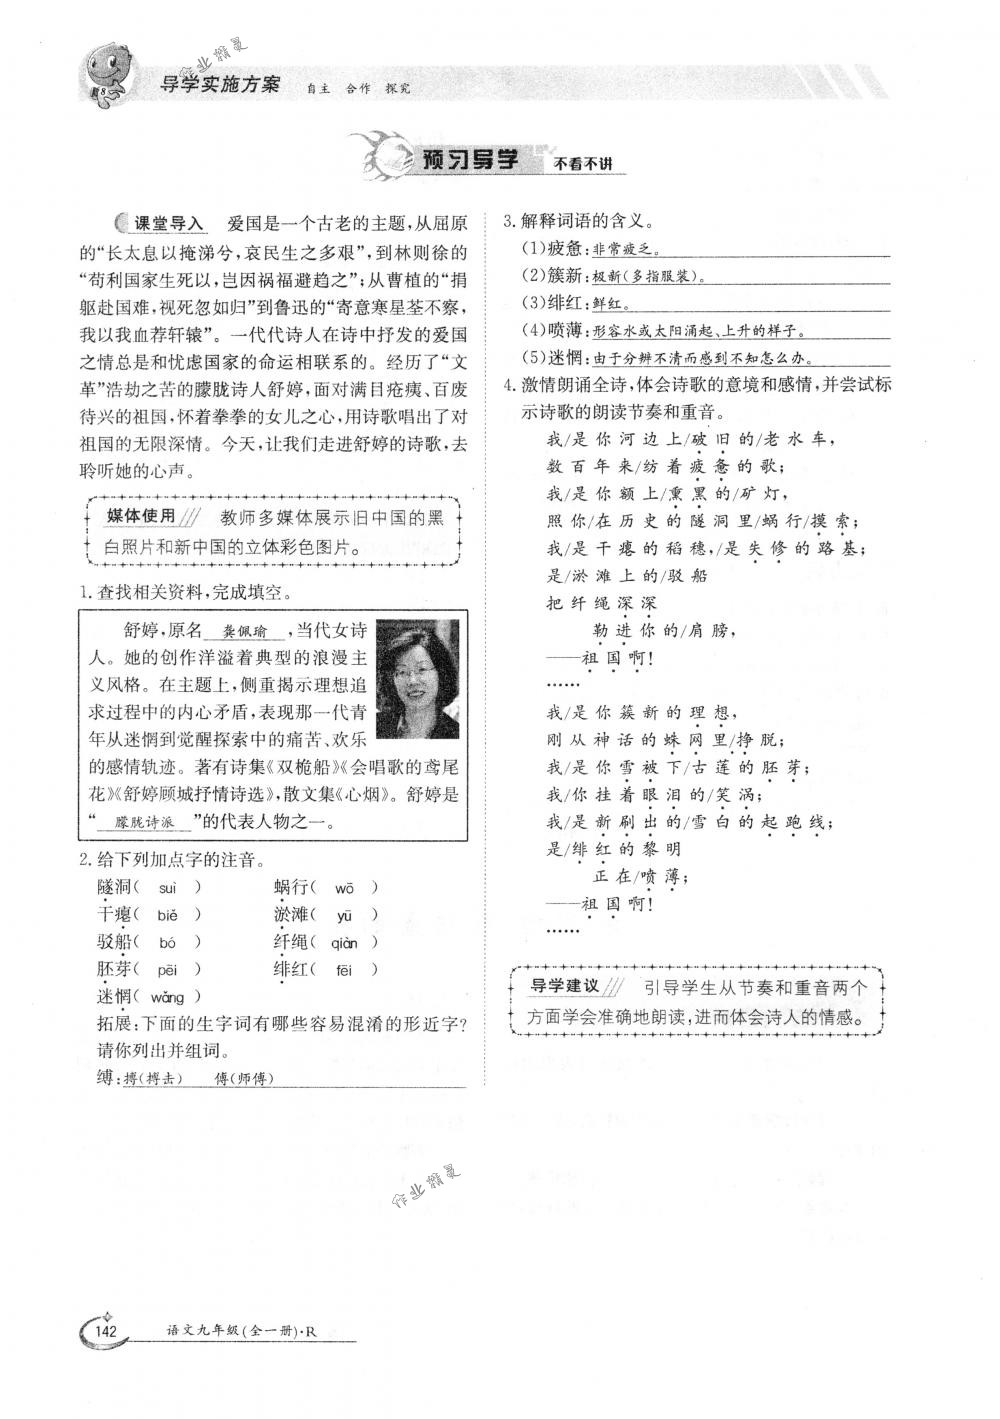 作业精灵
导学实施方案 自主 合作 探究
预习导学 不看不讲
课堂导入 爱国是一个古老的主题,从屈原
的“长太息以掩涕兮,哀民生之多艰”,到林则徐的
“苟利国家生死以,岂因祸福避趋之”;从曹植的“捐
躯赴国难,视死忽如归”到鲁迅的“寄意寒星荃不察,
我以我血荐轩辕”。一代代诗人在诗中抒发的爱国
之情总是和忧虑国家的命运相联系的。经历了“文
革”浩劫之苦的朦胧诗人舒婷,面对满目疮痍、百废
待兴的祖国,怀着拳拳的女儿之心,用诗歌唱出了对
祖国的无限深情。今天,让我们走进舒婷的诗歌,去
聆听她的心声。
媒体使用 教师多媒体展示旧中国的黑
白照片和新中国的立体彩色图片。
1. 查找相关资料,完成填空。
舒婷,原名 龚佩瑜 ,当代女诗
人。她的创作洋溢着典型的浪漫主
义风格。在主题上,侧重揭示理想追
求过程中的内心矛盾,表现那一代青
年从迷惘到觉醒探索中的痛苦、欢乐
的感情轨迹。著有诗集《双桅船》《会唱歌的鸢尾
花》《舒婷顾城抒情诗选》,散文集《心烟》。舒婷是
“ 朦胧诗派 ”的代表人物之一。
2. 给下列加点字的注音。
隧洞( suì ) 蜗行( wō )
干瘪( biě ) 淤滩( yū )
驳船( bó ) 纤绳( qiàn )
胚芽( pēi ) 绯红( fēi )
迷惘( wǎng )
拓展:下面的生字词有哪些容易混淆的形近字?
请你列出并组词。
缚:搏(搏击) 傅(师傅)
3. 解释词语的含义。
(1)疲惫:非常疲乏。
(2)簇新:极新(多指服装)。
(3)绯红:鲜红。
(4)喷薄:形容水或太阳涌起、上升的样子。
(5)迷惘:由于分辨不清而感到不知怎么办。
4. 激情朗诵全诗,体会诗歌的意境和感情,并尝试标
示诗歌的朗读节奏和重音。
我/是你河边上/破旧的/老水车,
数百年来/纺着疲惫的歌;
我/是你额上/熏黑的/矿灯,
照你/在历史的隧洞里/蜗行/摸索;
我/是干瘪的稻穗,/是失修的路基;
是/淤滩上的/驳船
把纤绳深深
勒进你的/肩膀,
——祖国啊!
……
我/是你簇新的理想,
刚从神话的蛛网里/挣脱;
我/是你雪被下/古莲的胚芽;
我/你挂着眼泪的/笑涡;
我/是新刷出的/雪白的起跑线;
是/绯红的黎明
正在/喷薄;
——祖国啊!
……
导学建议 引导学生从节奏和重音两个
方面学会准确地朗读,进而体会诗人的情感。
作业精灵
142 语文九年级(全一册)·R